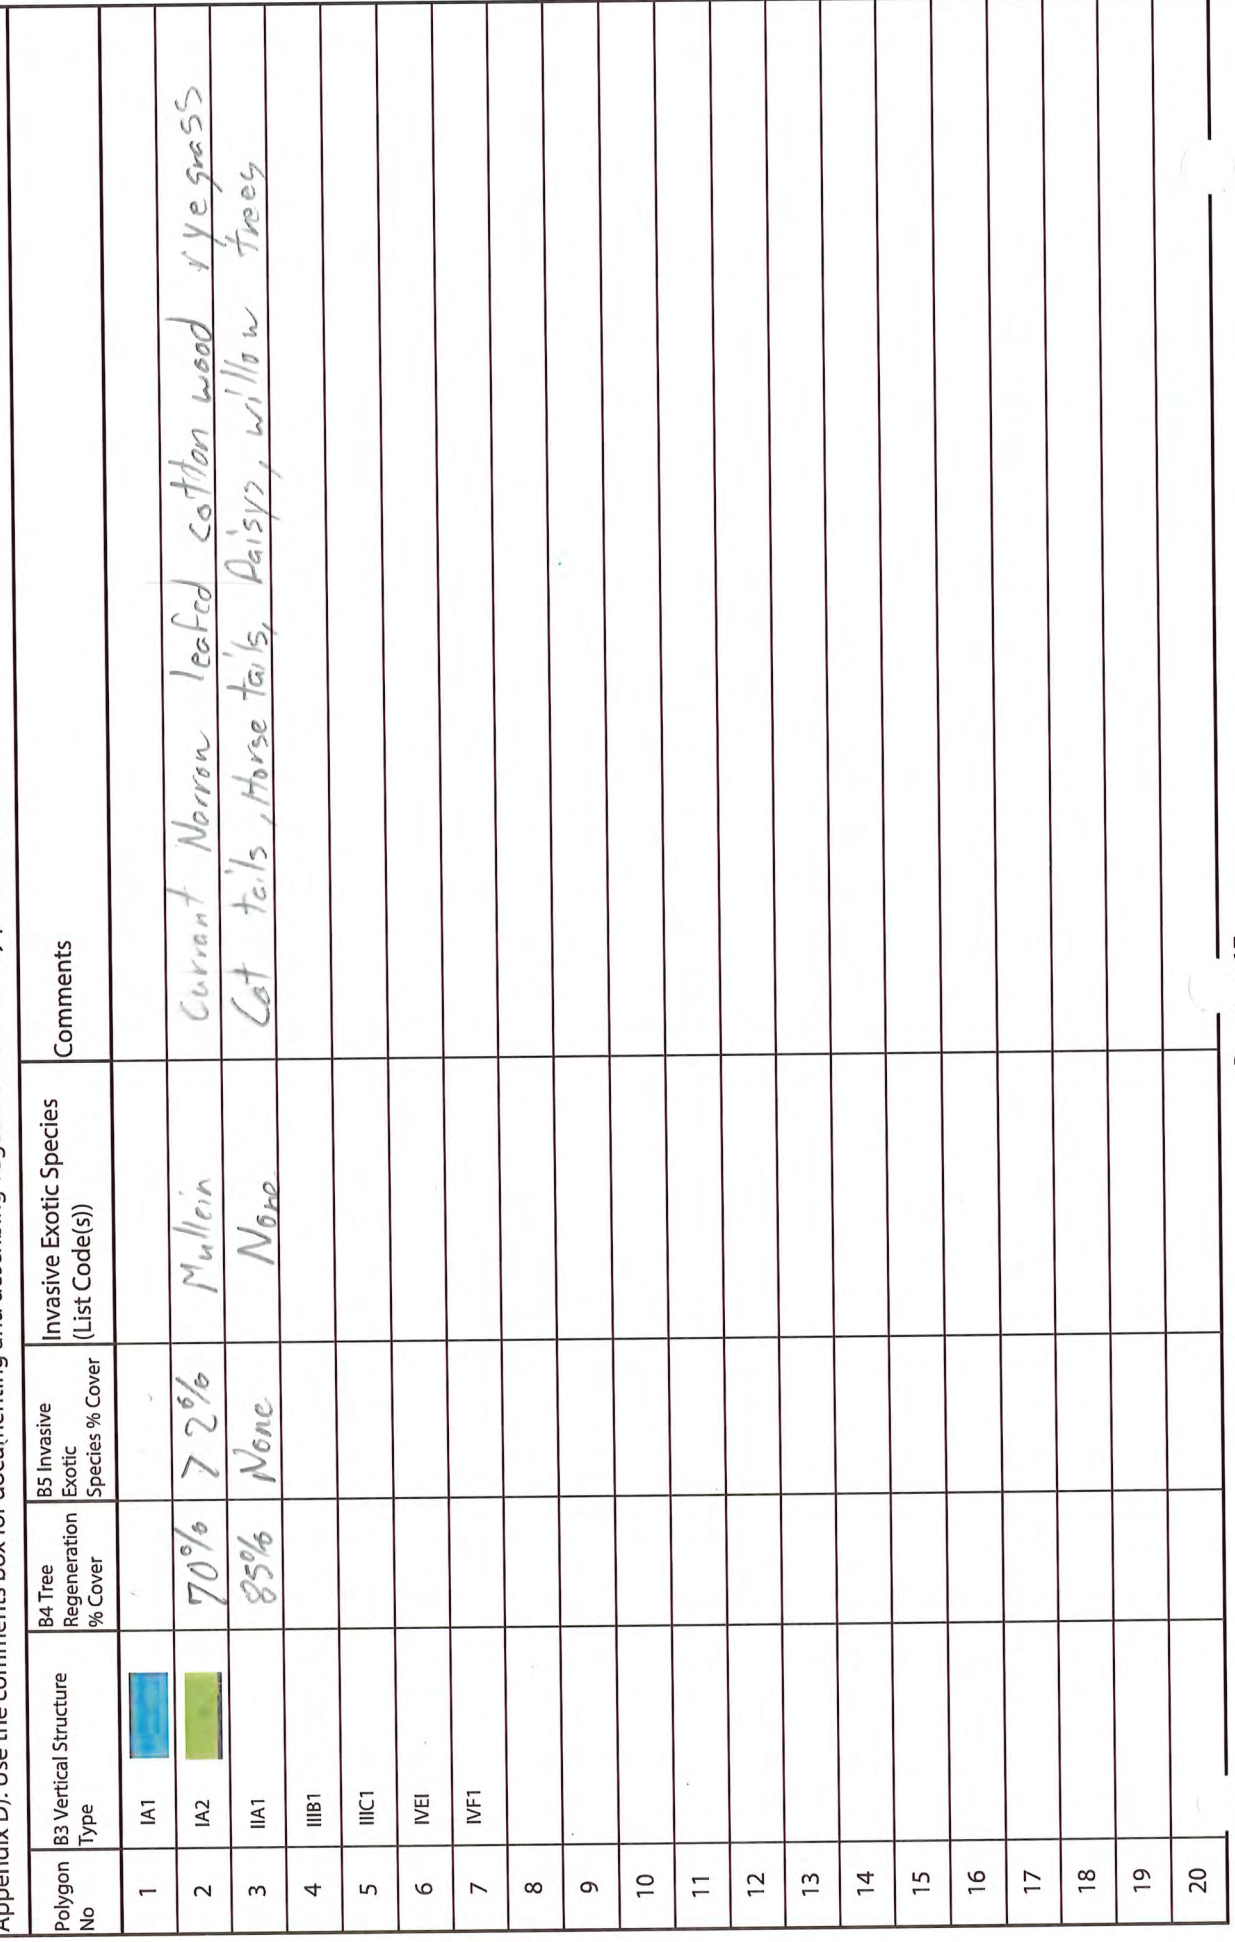 Appendix D). Use the comments box for documenting and describing
Polygon No
B3 Vertical Structure Type
B4 Tree Regeneration % Cover
B5 Invasive Exotic Species % Cover
Invasive Exotic Species (List Code(s))
Comments
1 IA1
2 IA2 70% > 2% Mullein Currant Narron leafed cotton wood ryegrass
3 IIA1 85% None None Cat tails, Horse tails, Daisys, willow trees
4 IIIB1
5 IIIC1
6 IVEI
7 IVF1
8
9
10
11
12
13
14
15
16
17
18
19
20